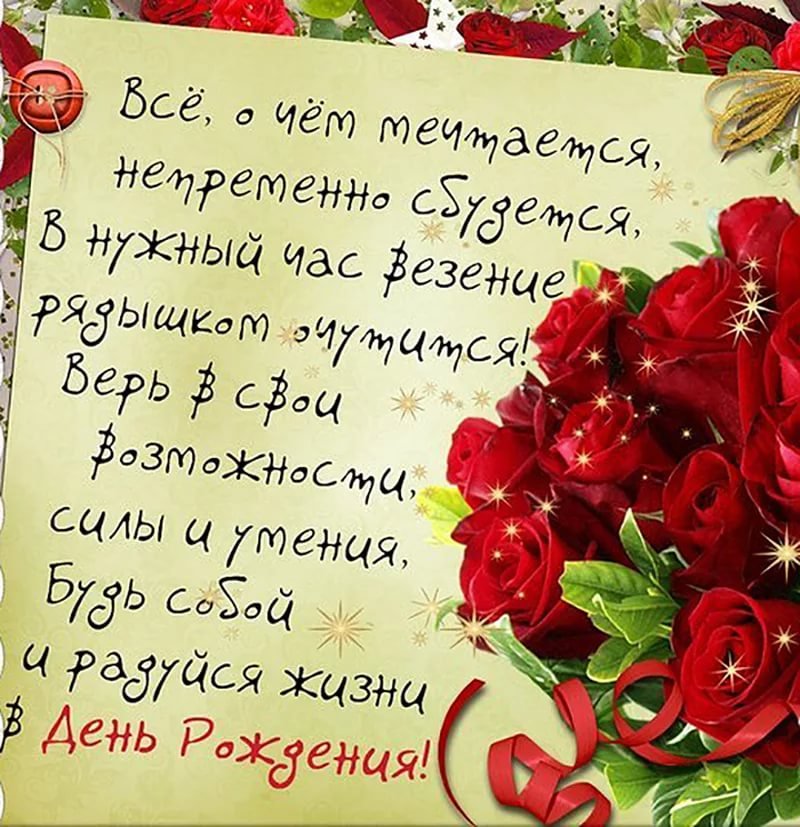 Всё, о чём мечтается,
непременно сбудется,
В нужный час везение
рядышком очутится!
Верь в свои
возможности,
силы и умения,
Будь собой
и радуйся жизни
в День Рождения!